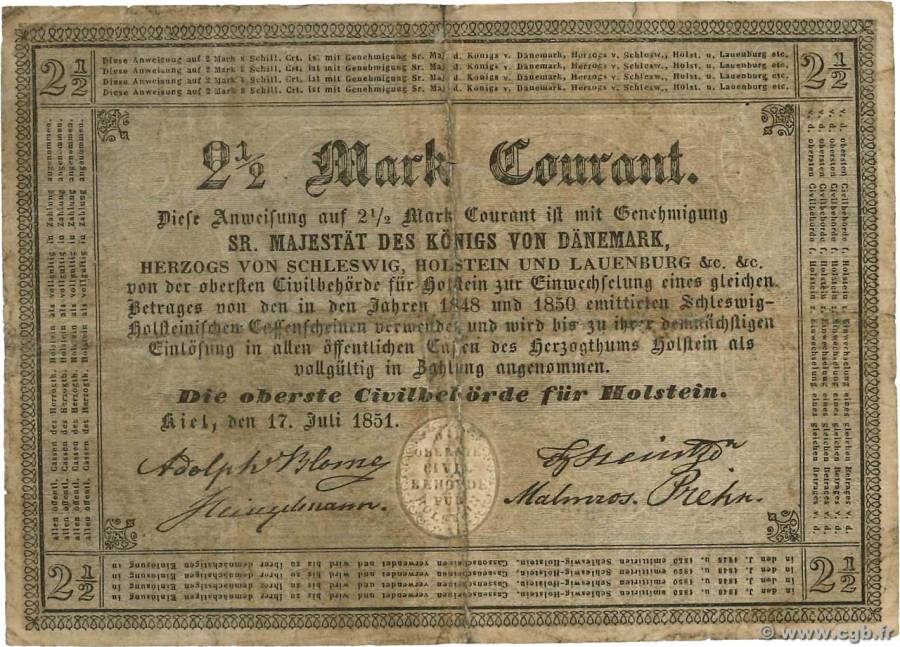 2 1/2
Diese Anweisung auf 2 Mark 8 Schill. Crt. ist mit Genehmigung Sr. Maj. d. Königs v. Dänemark, Herzogs v. Schlesw., Holst. u. Lauenburg etc.
Diese Anweisung auf 2 Mark 8 Schill. Crt. ist mit Genehmigung Sr. Maj. d. Königs v. Dänemark, Herzogs v. Schlesw., Holst. u. Lauenburg etc.
Diese Anweisung auf 2 Mark 8 Schill. Crt. ist mit Genehmigung Sr. Maj. d. Königs v. Dänemark, Herzogs v. Schlesw., Holst. u. Lauenburg etc.
Diese Anweisung auf 2 Mark 8 Schill. Crt. ist mit Genehmigung Sr. Maj. d. Königs v. Dänemark, Herzogs v. Schlesw., Holst. u. Lauenburg etc.
2 1/2
2 1/2 Mark Courant.
Diese Anweisung auf 2 1/2 Mark Courant ist mit Genehmigung
SR. MAJESTÄT DES KÖNIGS VON DÄNEMARK,
HERZOGS VON SCHLESWIG, HOLSTEIN UND LAUENBURG &c. &c.
von der obersten Civilbehörde für Holstein zur Einwechselung eines gleichen
Betrages von den in den Jahren 1848 und 1850 emittirten Schleswig-
Holsteinischen Cassenscheinen verwendet und wird bis zu ihrer demnächstigen
Einlösung in allen öffentlichen Cassen des Herzogthums Holstein als
vollgültig in Zahlung angenommen.
Die oberste Civilbehörde für Holstein.
Kiel, den 17. Juli 1851.
Adolph Blome
Heintzelmann.
Malmros. Prehn.
DIE
OBERSTE
CIVIL
BEHÖRDE
FÜR
HOLSTEIN
v. d. obersten Civilbehörde f. Holstein z. Einwechselung eines gleichen Betrages v. d.
v. d. obersten Civilbehörde f. Holstein z. Einwechselung eines gleichen Betrages v. d.
v. d. obersten Civilbehörde f. Holstein z. Einwechselung eines gleichen Betrages v. d.
v. d. obersten Civilbehörde f. Holstein z. Einwechselung eines gleichen Betrages v. d.
in den J. 1848 u. 1850 emittirten Schleswig-Holstein. Cassenscheinen verwendet und wird bis zu ihrer demnächstigen Einlösung in
in den J. 1848 u. 1850 emittirten Schleswig-Holstein. Cassenscheinen verwendet und wird bis zu ihrer demnächstigen Einlösung in
in den J. 1848 u. 1850 emittirten Schleswig-Holstein. Cassenscheinen verwendet und wird bis zu ihrer demnächstigen Einlösung in
in den J. 1848 u. 1850 emittirten Schleswig-Holstein. Cassenscheinen verwendet und wird bis zu ihrer demnächstigen Einlösung in
allen öffentl. Cassen des Herzogth. Holstein als vollgültig in Zahlung angenommen.
allen öffentl. Cassen des Herzogth. Holstein als vollgültig in Zahlung angenommen.
allen öffentl. Cassen des Herzogth. Holstein als vollgültig in Zahlung angenommen.
allen öffentl. Cassen des Herzogth. Holstein als vollgültig in Zahlung angenommen.
2 1/2
2 1/2
© www.cgb.fr